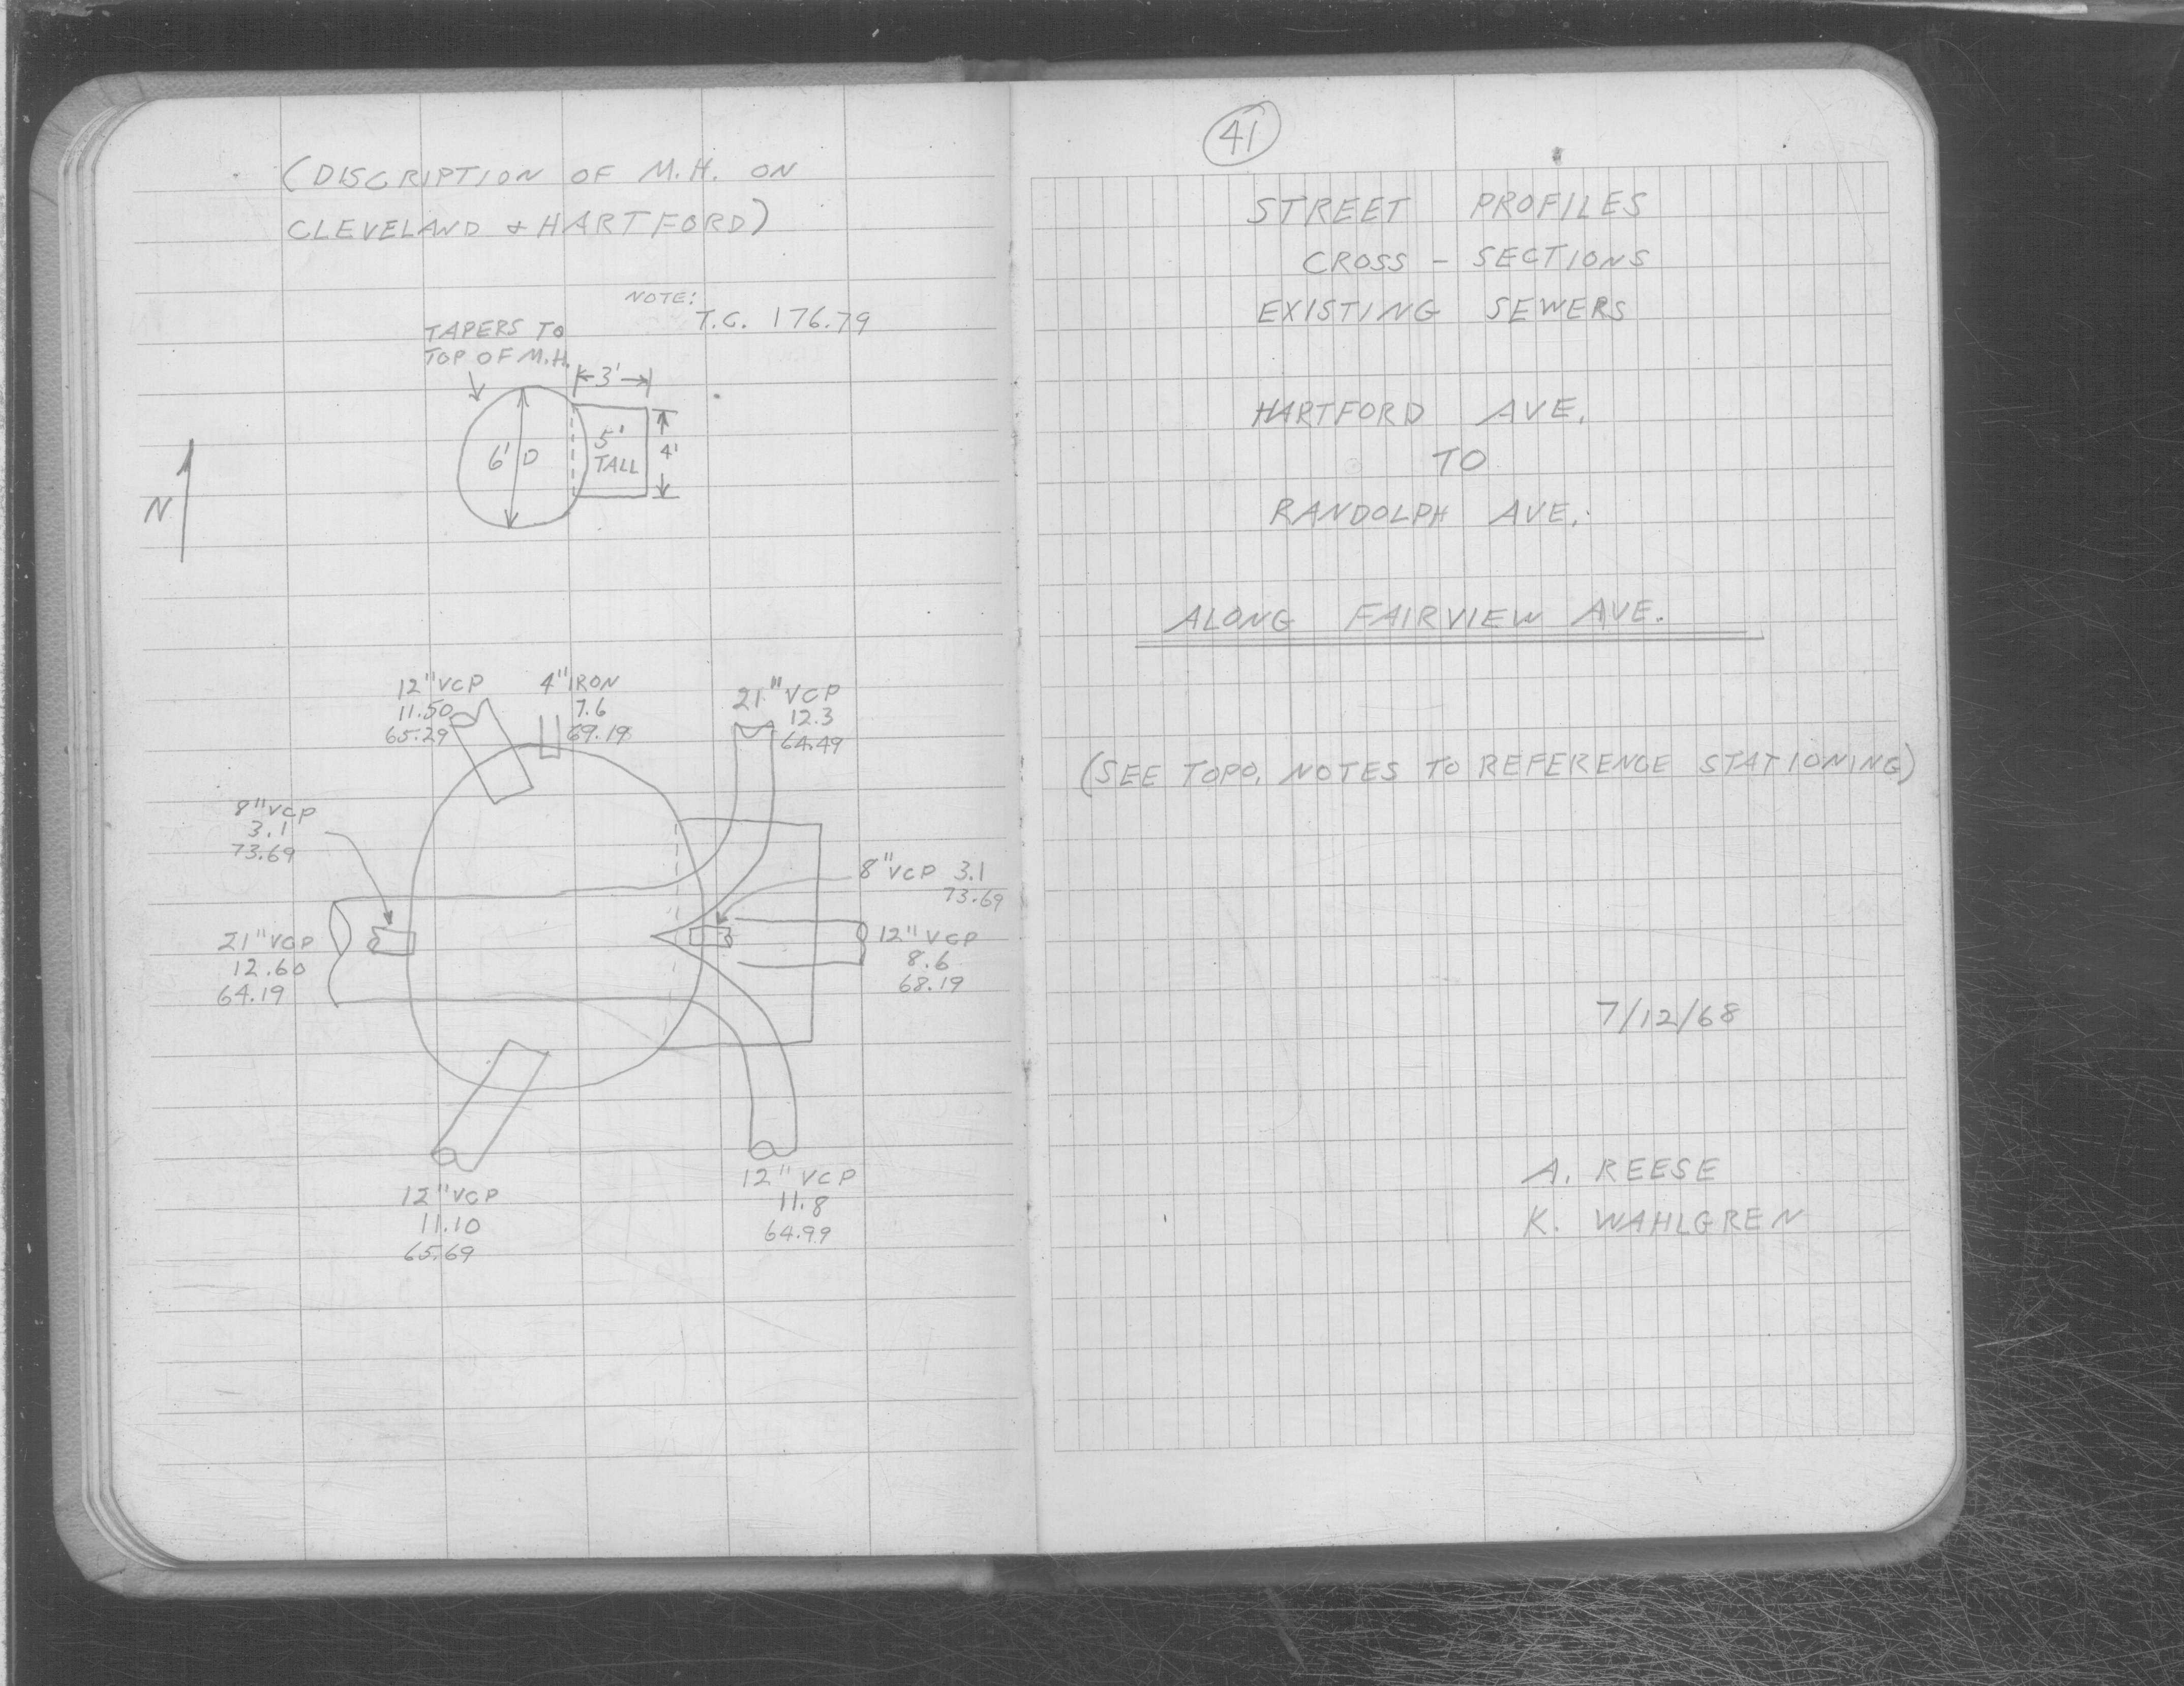 (DISCRIPTION OF M.H. ON
CLEVELAND & HARTFORD)
NOTE:
T.C. 176.79
TAPERS TO
TOP OF M.H.
3'
6' D
5'
TALL
4'
N
12" VCP
11.50
65.29
4" IRON
7.6
69.19
21" VCP
12.3
64.49
8" VCP
3.1
73.69
8" VCP 3.1
73.69
21" VCP
12.60
64.19
12" VCP
8.6
68.19
12" VCP
11.10
65.69
12" VCP
11.8
64.99
41
STREET PROFILES
CROSS - SECTIONS
EXISTING SEWERS
HARTFORD AVE.
TO
RANDOLPH AVE.
ALONG FAIRVIEW AVE.
(SEE TOPO. NOTES TO REFERENCE STATIONING)
7/12/68
A. REESE
K. WAHLGREN